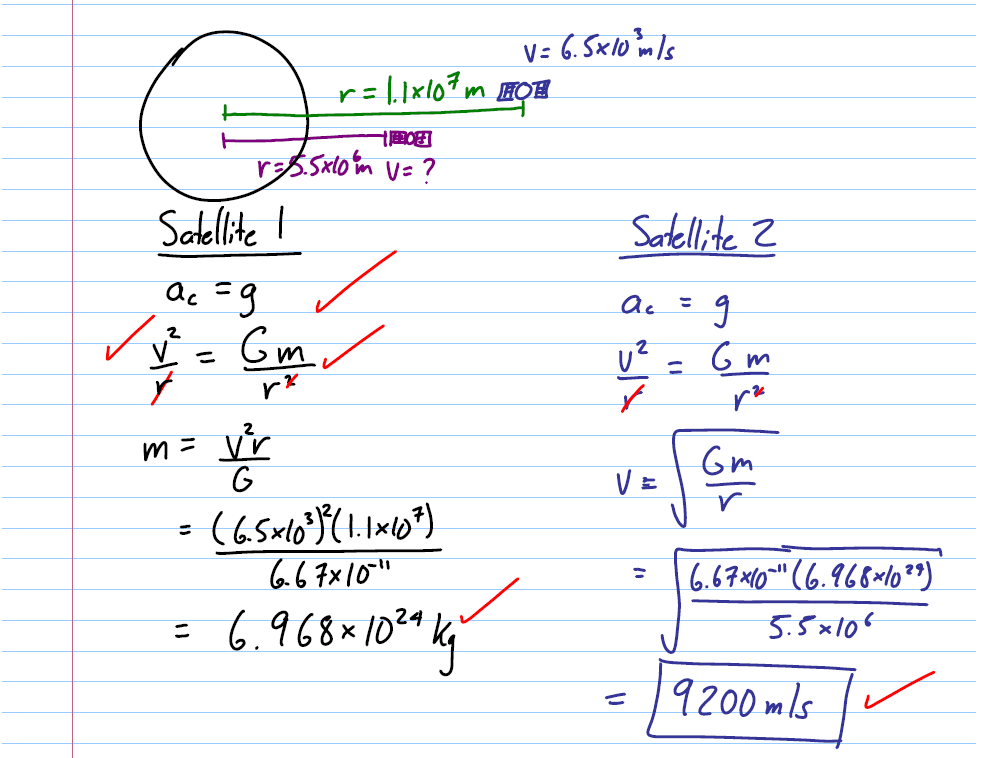 v = 6.5×10³ m/s
r = 1.1×10⁷ m
r = 5.5×10⁶ m v = ?
Satellite 1
a_c = g
v²/r = Gm/r²
m = v²r/G
= (6.5×10³)²(1.1×10⁷)/6.67×10⁻¹¹
= 6.968×10²⁴ kg
Satellite 2
a_c = g
v²/r = Gm/r²
v = √(Gm/r)
= √(6.67×10⁻¹¹(6.968×10²⁴)/5.5×10⁶)
= 9200 m/s